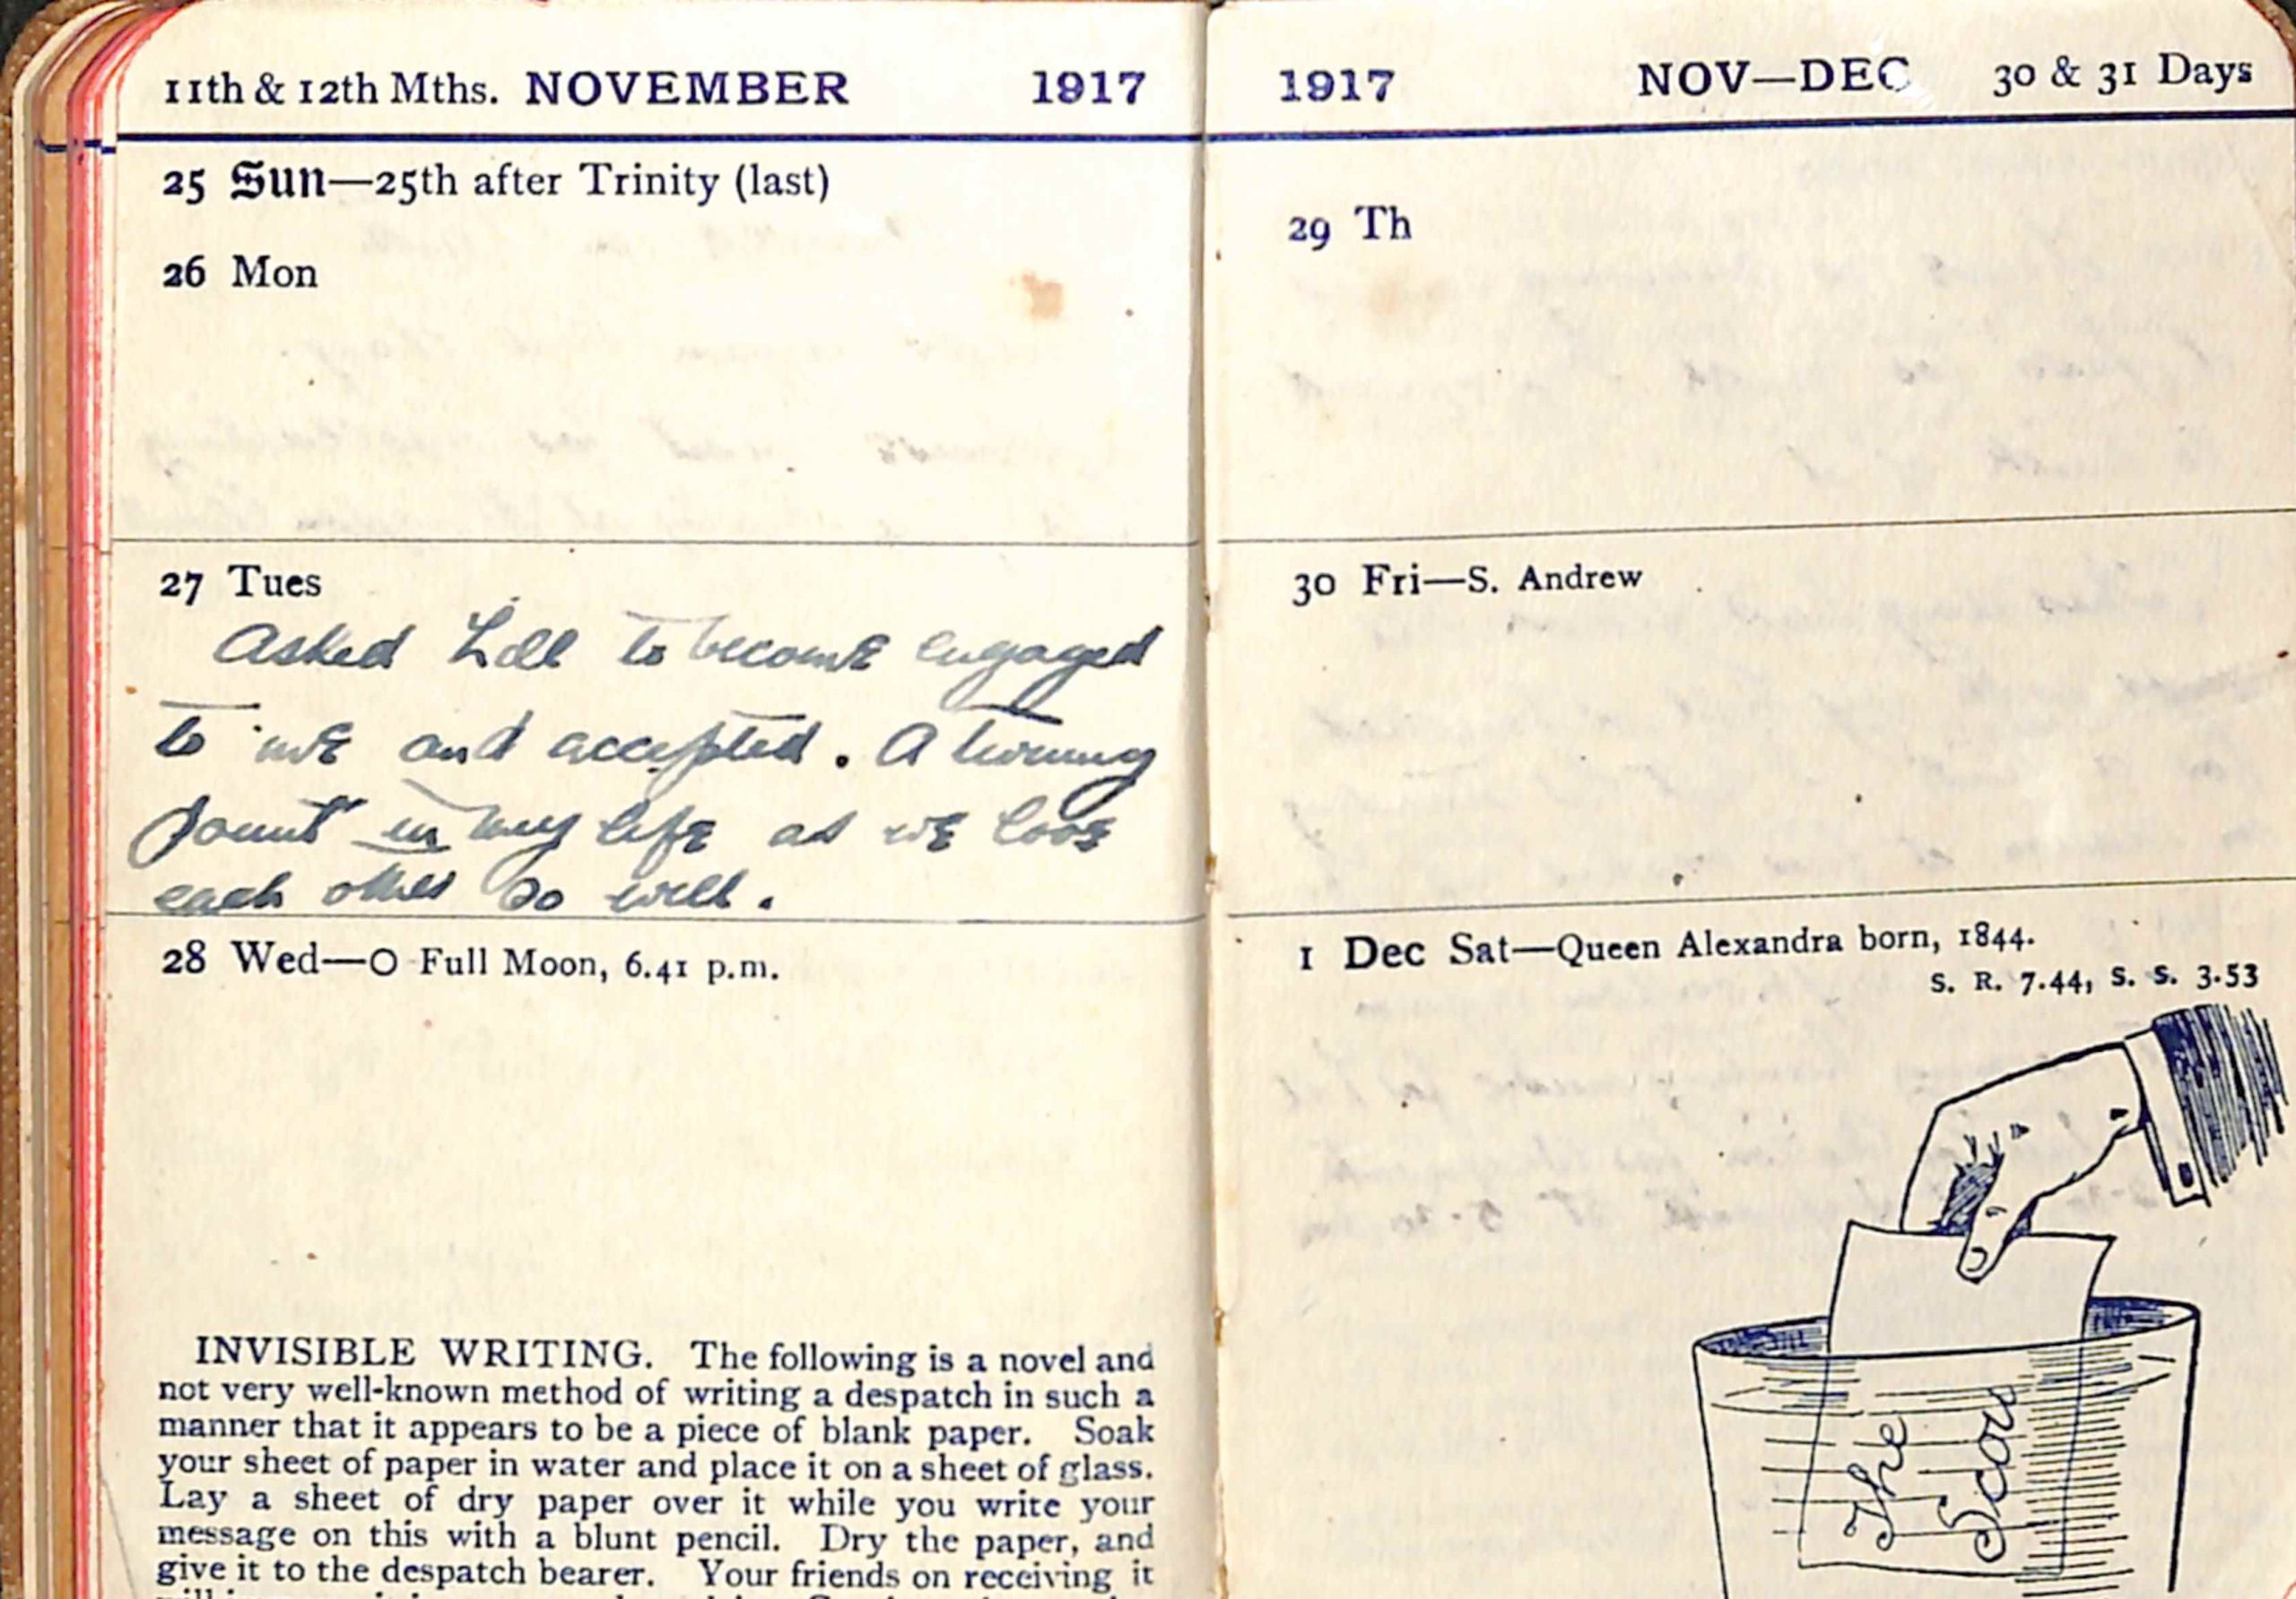 11th & 12th Mths. NOVEMBER 1917
25 Sun—25th after Trinity (last)
26 Mon
27 Tues
Asked Lill to become engaged
to me and accepted. A turning
point in my life as we love
each other so well.
28 Wed—O Full Moon, 6.41 p.m.
INVISIBLE WRITING. The following is a novel and
not very well-known method of writing a despatch in such a
manner that it appears to be a piece of blank paper. Soak
your sheet of paper in water and place it on a sheet of glass.
Lay a sheet of dry paper over it while you write your
message on this with a blunt pencil. Dry the paper, and
give it to the despatch bearer. Your friends on receiving it
1917 NOV—DEC 30 & 31 Days
29 Th
30 Fri—S. Andrew
1 Dec Sat—Queen Alexandra born, 1844.
S. R. 7.44, S. S. 3.53
The
Scou